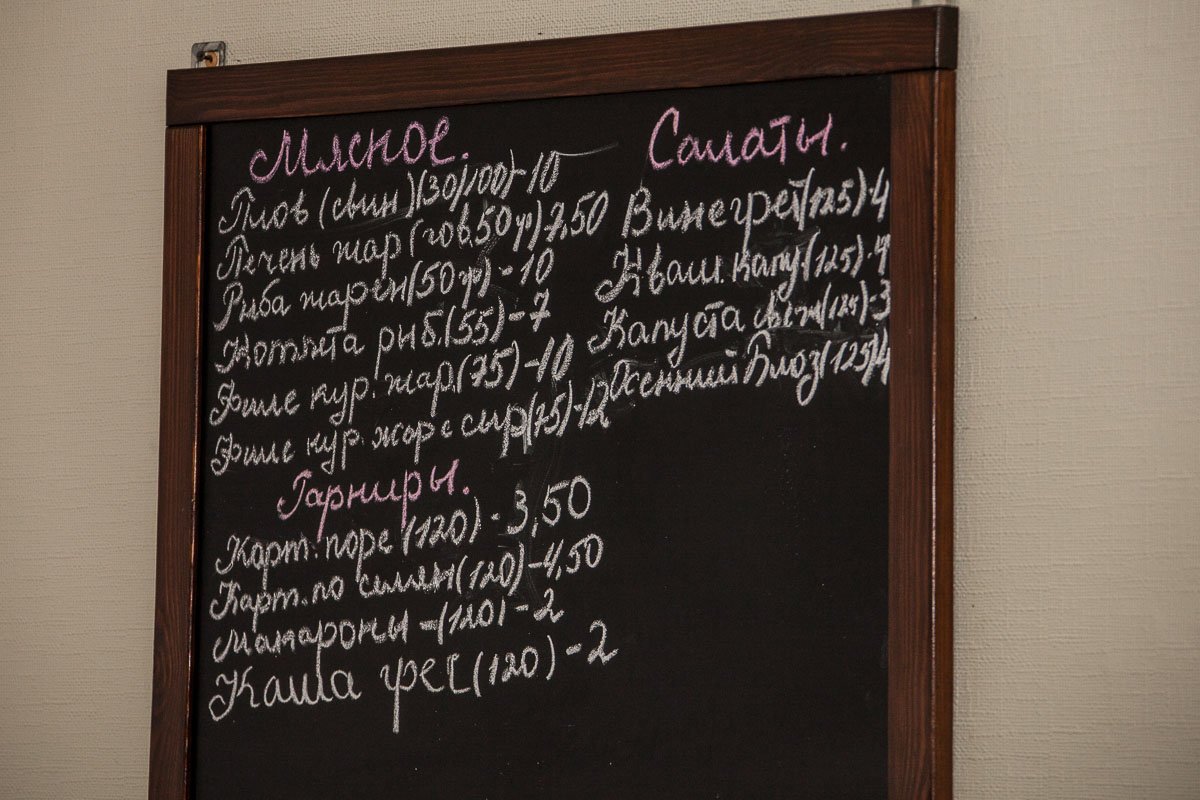 Мясное.
Плов (свин) (30/100) - 10
Печень жар (гов. 50 гр) 7,50
Рыба жарен (50 гр) - 10
Котлета рыб. (55) - 7
Филе кур. жар. (75) - 10
Филе кур. жар с сыр (75) - 12
Гарниры.
Карт. пюре (120) - 3,50
Карт. по селян (120) - 4,50
Макароны - (120) - 2
Каша греч (120) - 2
Салаты.
Винегрет (125) - 4
Кваш. капу. (125) - 4
Капуста свеж (125) - 3
Осенний Блюз (125) 4